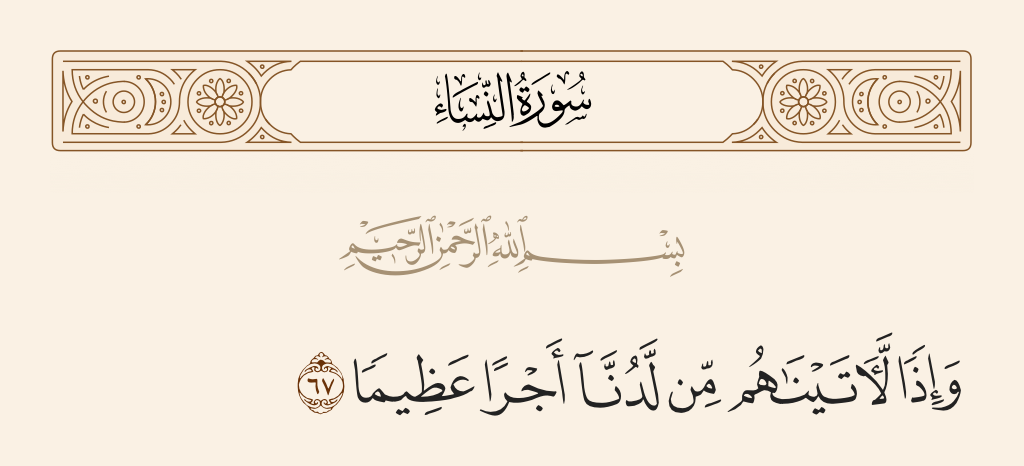 سُورَةُ النِّسَاءِ
بِسْمِ ٱللَّهِ ٱلرَّحْمَٰنِ ٱلرَّحِيمِ
وَإِذًا لَّـَٔاتَيْنَـٰهُم مِّن لَّدُنَّآ أَجْرًا عَظِيمًا ٦٧